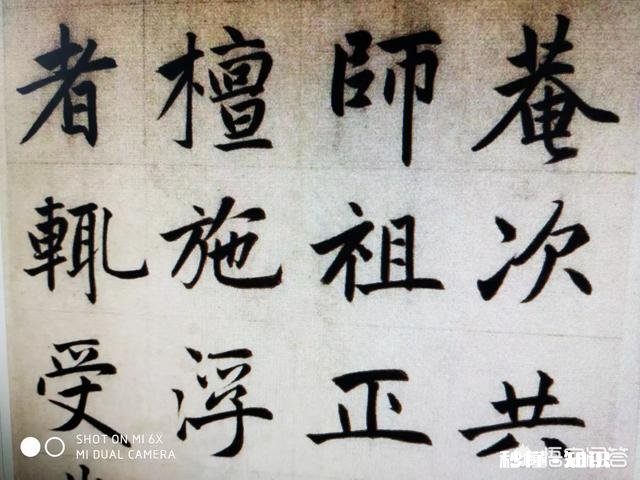 菴次共
師祖正
檀施浮
者輒受
SHOT ON MI 6X
MI DUAL CAMERA
悟空问答
秒懂·知识